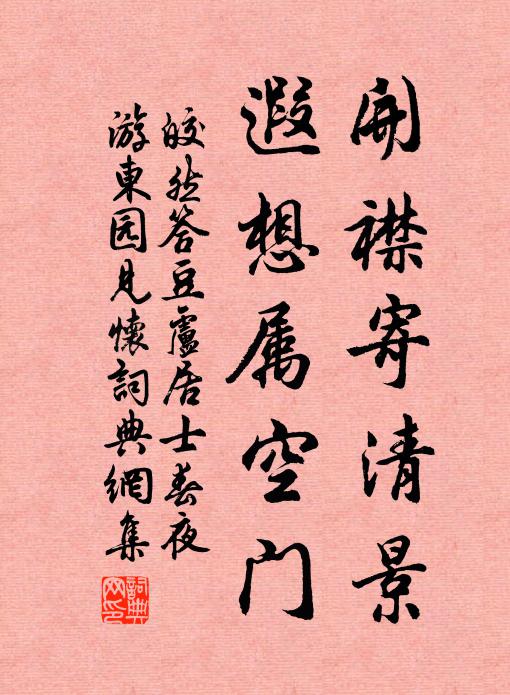 開襟寄清景
遐想属空門
皎然答豆盧居士春夜
游東园見懷詞典網集
詞典网印